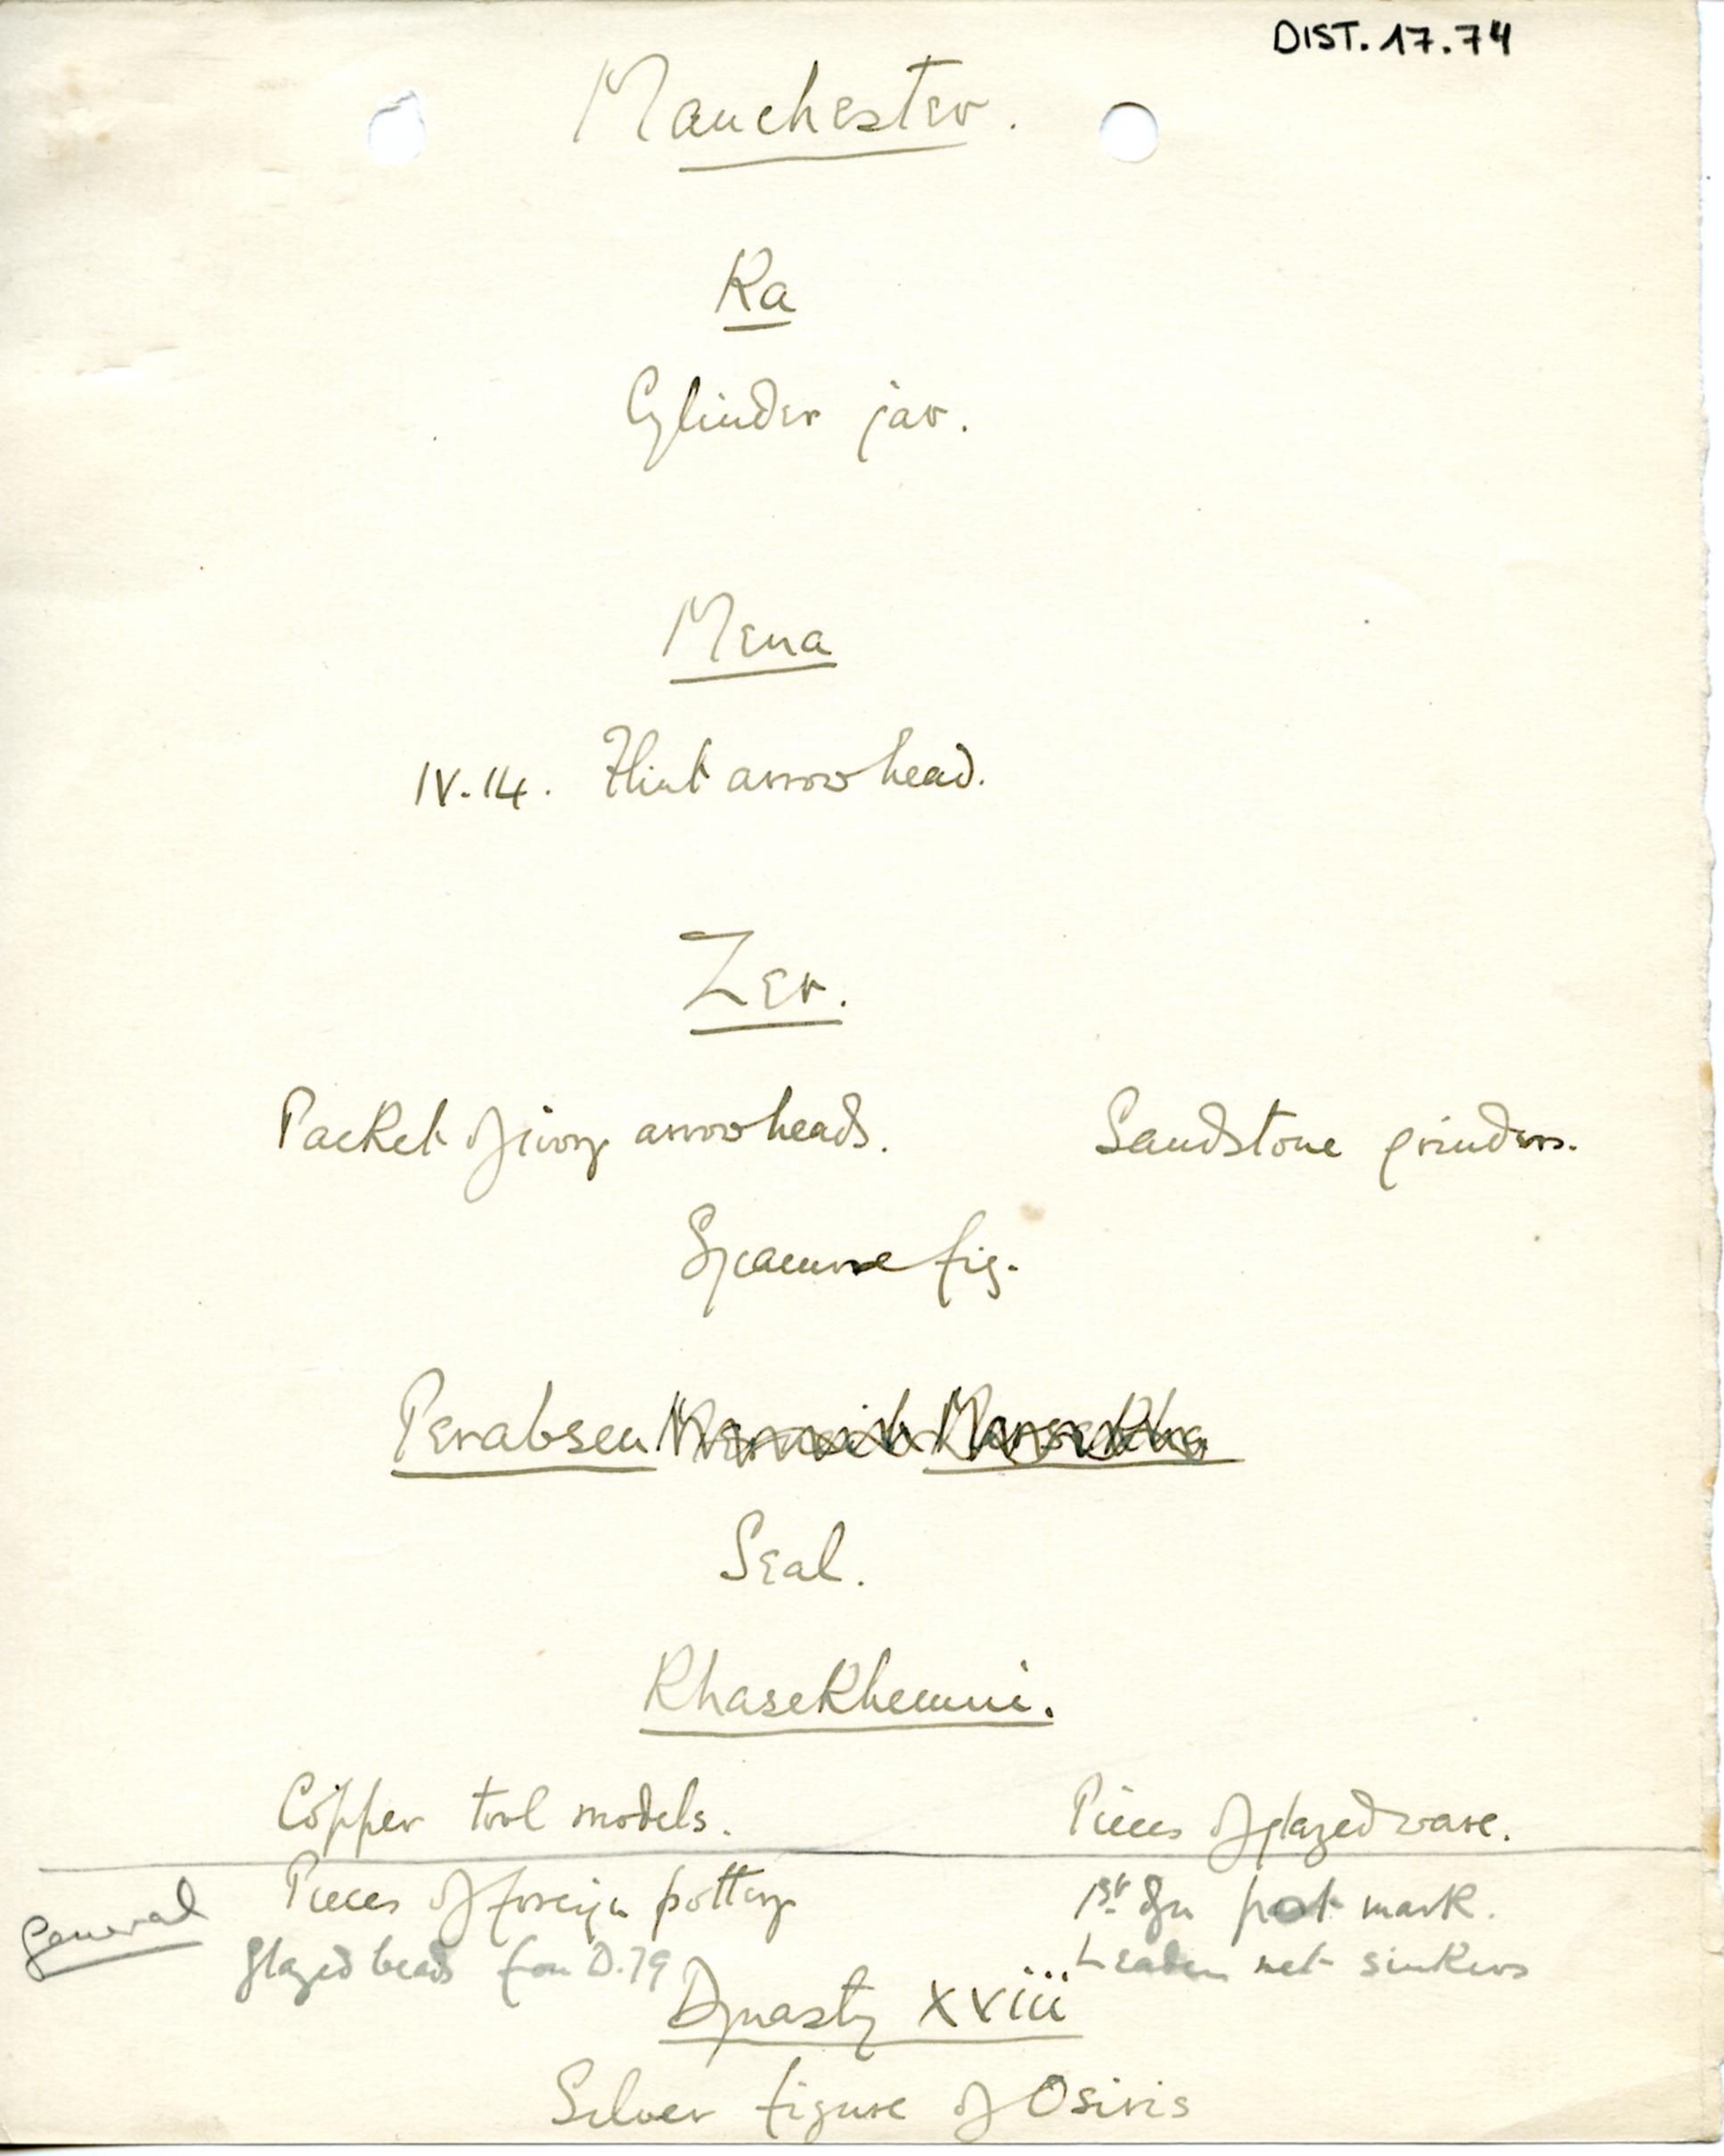 DIST. 17.74
Manchester.
Ka
Cylinder jar.
Mena
IV.14. Flint arrowhead.
Zer.
Packet of ivory arrowheads. Sandstone grinders.
Sycamore fig.
Perabsen
Seal.
Khasekhemui.
Copper tool models. Pieces of glazed ware.
General Pieces of foreign pottery 1st Dyn pot mark.
Glazed beads from D.79 Leaden net sinkers
Dynasty XVIII
Silver figure of Osiris